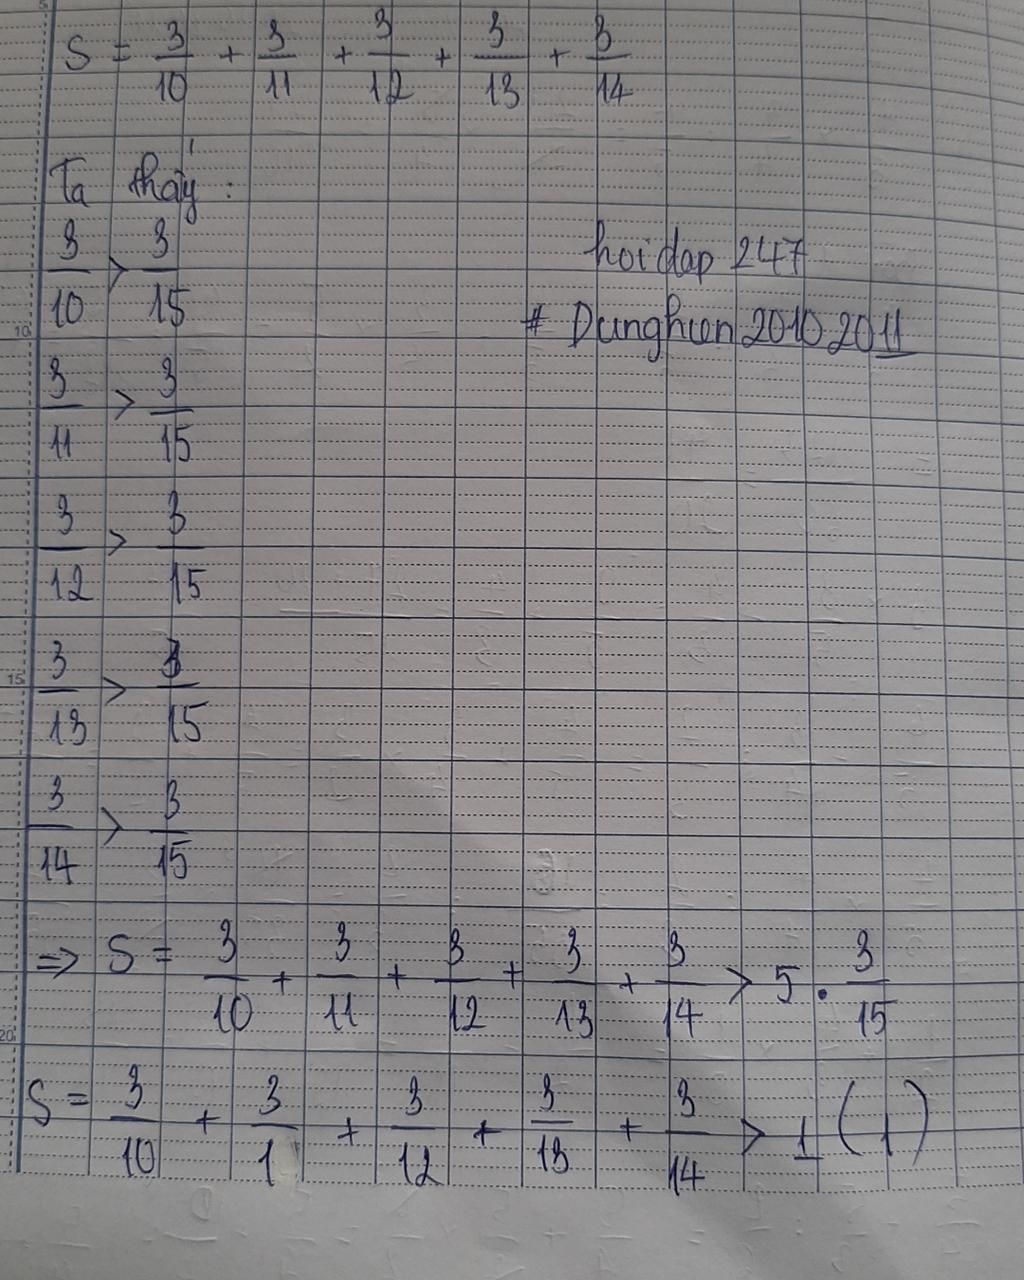 S = 3/10 + 3/11 + 3/12 + 3/13 + 3/14
Ta thấy :
3/10 > 3/15
hoidap 247
# Dunghien 2010 2011
3/11 > 3/15
3/12 > 3/15
3/13 > 3/15
3/14 > 3/15
=> S = 3/10 + 3/11 + 3/12 + 3/13 + 3/14 > 5 . 3/15
S = 3/10 + 3/1 + 3/12 + 3/13 + 3/14 > 1 (1)